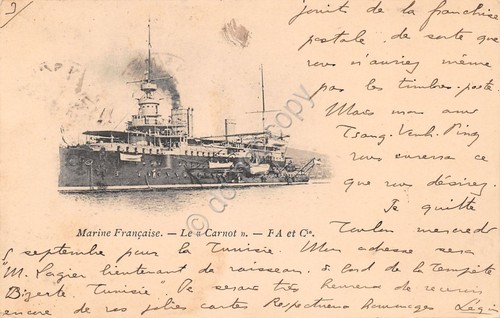 jouit de la franchise
postale. de sorte que
vous n'auriez même
pas les timbres-poste.
Mais mon ami
Tsang-Venh-Ping
vous enverra ce
que vous désirez.
Je quitte
Marine Française. - Le « Carnot ». - FA et Cie.
Toulon mercredi
septembre pour la Tunisie. Mon adresse sera
"M. Lagier lieutenant de vaisseau, à bord de la Tempête
Bizerte. Tunisie". Je serais très heureux de recevoir
encore de vos jolies cartes Respectueux hommages